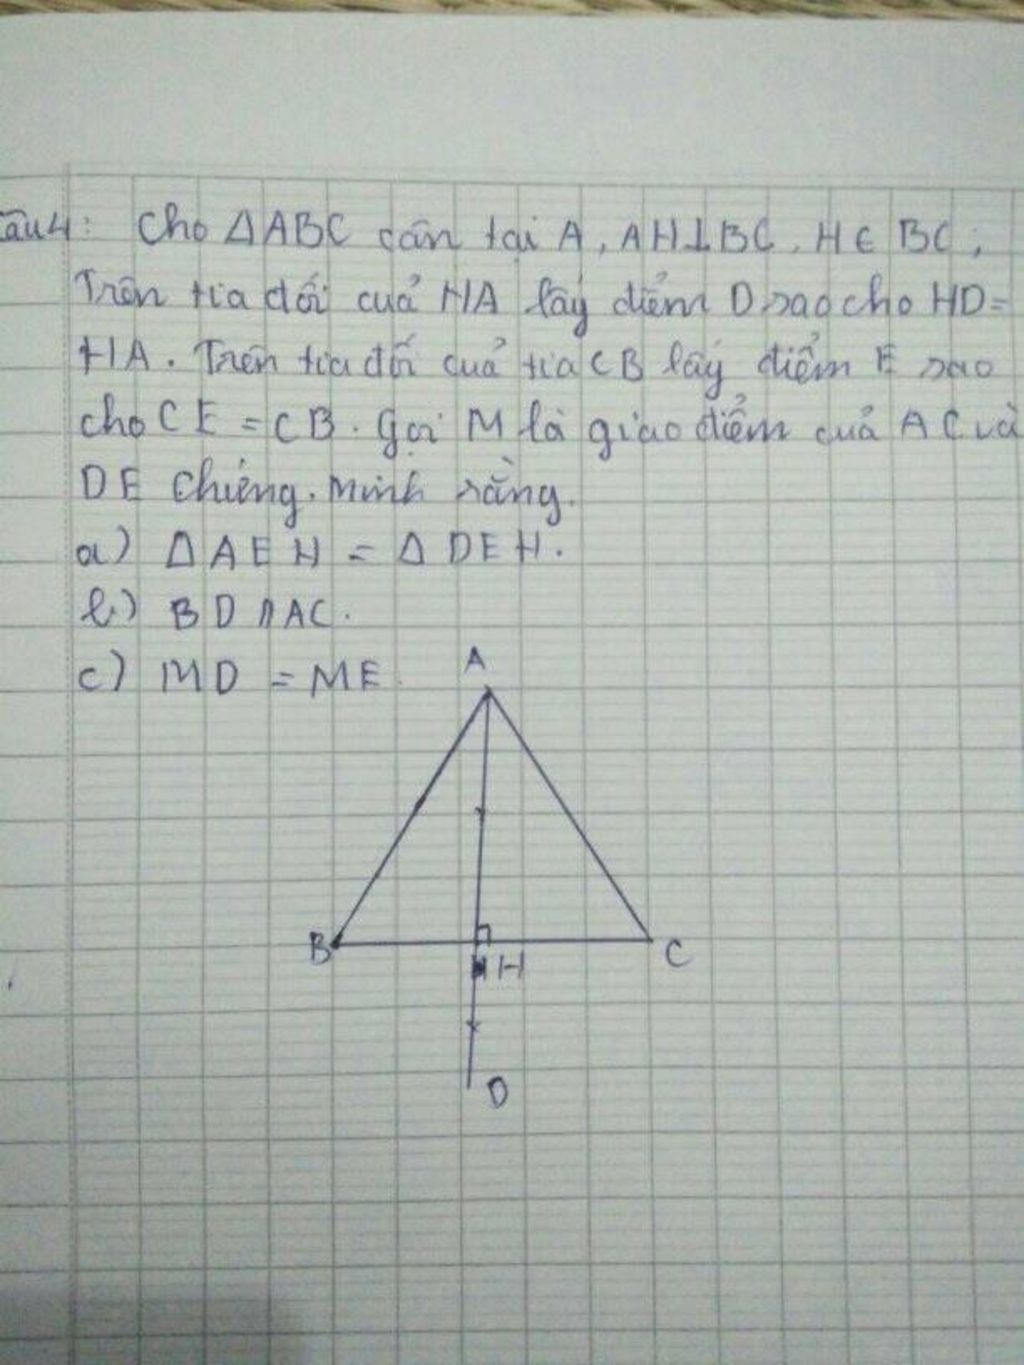 Câu 4: Cho ΔABC cân tại A, AH⊥BC, H∈ BC,
Trên tia đối cuả HA lấy điểm D sao cho HD=
HA. Trên tia đối cuả tia CB lấy điểm E sao
cho CE = CB. Gọi M là giao điểm cuả AC và
DE chứng minh rằng.
a) Δ AEH = Δ DEH.
b) BD // AC.
c) MD = ME.
A
B
H
C
D